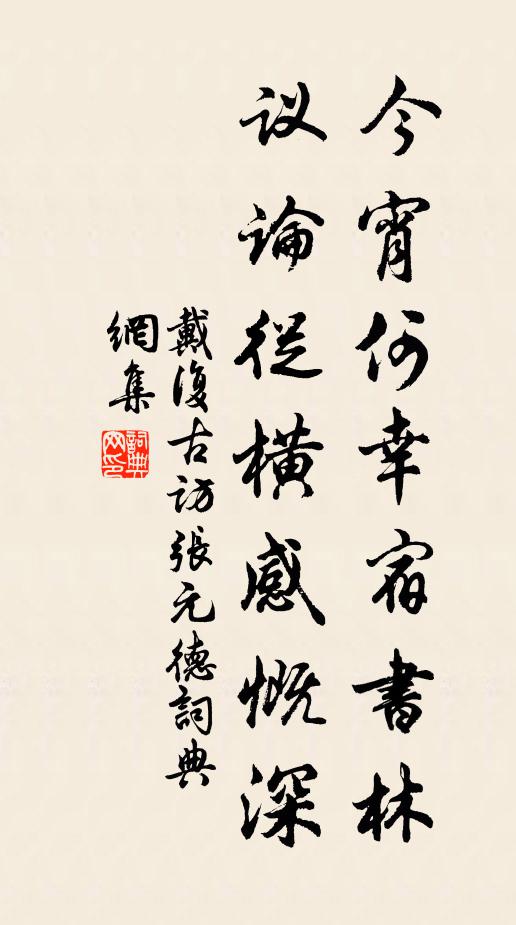 今宵何幸宿書林
议論從横感慨深
戴復古访張元德詞典
網集
詞典
网印